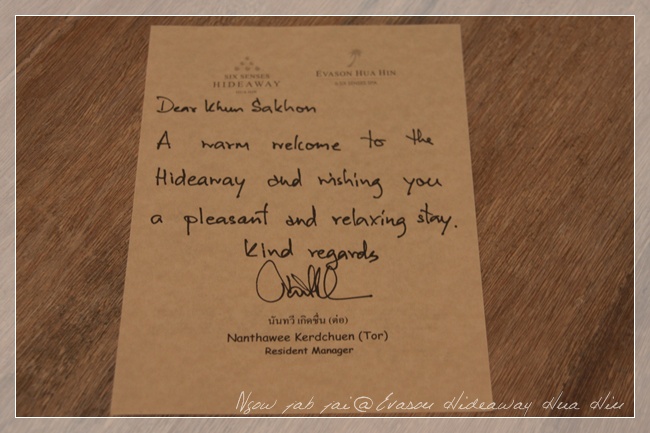 SIX SENSES
HIDEAWAY
EVASON HUA HIN
Dear Khun Sakhon
A warm welcome to the
Hideaway and wishing you
a pleasant and relaxing stay.
Kind regards
นันทวี เกิดชื่น (ต่อ)
Nanthawee Kerdchuen (Tor)
Resident Manager
Ngow jab jai@Evason Hideaway Hua Hin